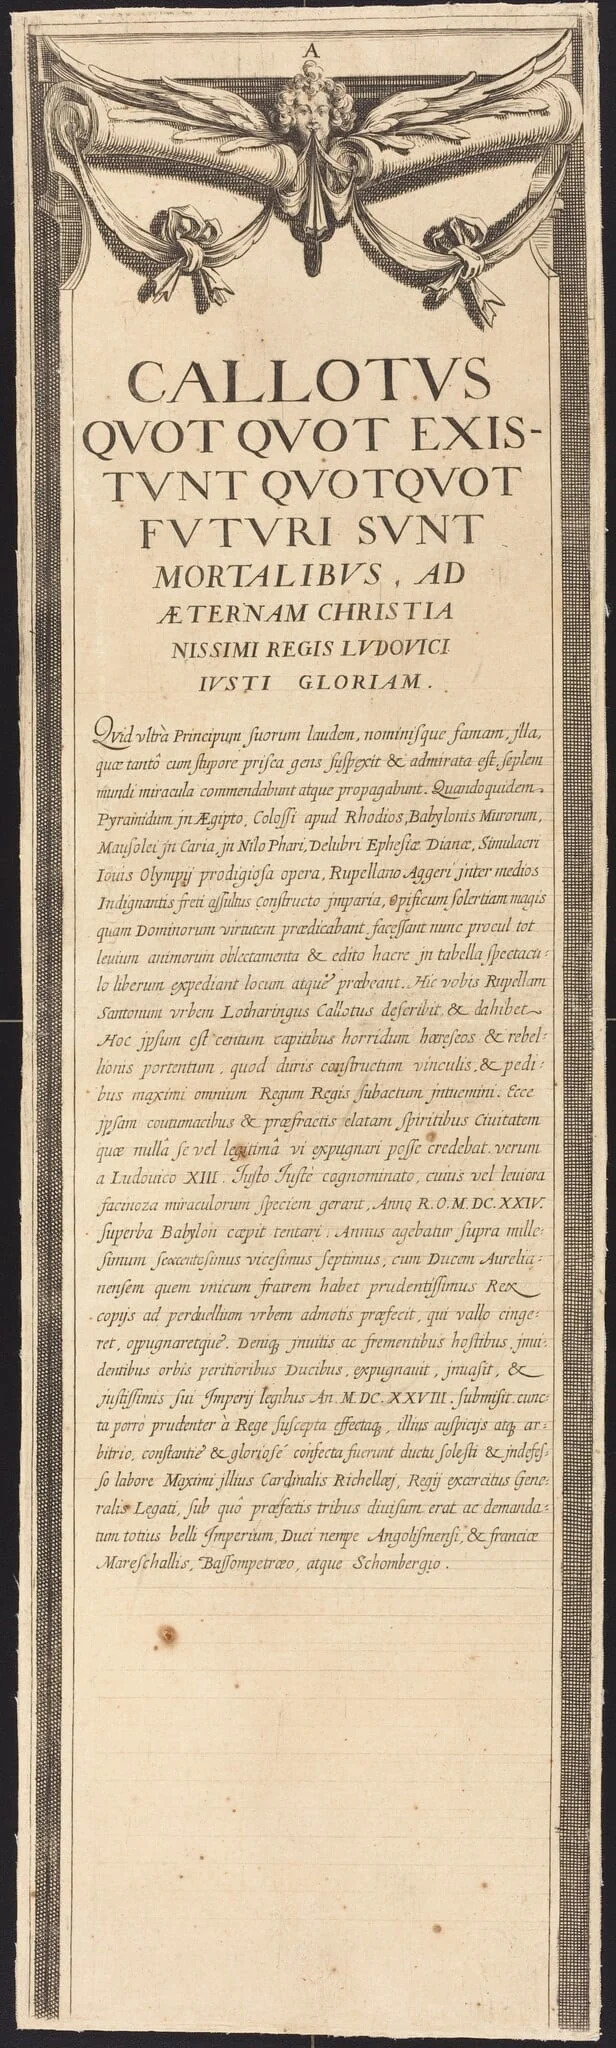 A
CALLOTVS
QVOT QVOT EXIS-
TVNT QVOTQVOT
FVTVRI SVNT
MORTALIBVS, AD
ÆTERNAM CHRISTIA
NISSIMI REGIS LVDOVICI
IVSTI GLORIAM.
Qvid vltrà Principum suorum laudem, nominisque famam, jlla,
quæ tantô cum stupore prisca gens suspexit & admirata est, septem
mundi miracula commendabunt atque propagabunt. Quandoquidem
Pyramidum jn Ægipto, Colossi apud Rhodios, Babylonis Murorum,
Mausolei jn Caria, jn Nilo Phari, Delubri Ephesiæ Dianæ, Simulacri
Iouis Olympij prodigiosa opera, Rupellano Aggeri jnter medios
Indignantis freti assultus constructo jmparia, opificum solertiam magis
quam Dominorum virtutem prædicabant, facessant nunc procul tot
leuium animorum oblectamenta & edito hacre jn tabella spectacu-
lo liberum expediant locum atque præbeant. Hic vobis Rupellam
Santonum vrbem Lotharingus Callotus describit, & dahibet
Hoc jpsum est centum capitibus horridum hæreseos & rebel-
lionis portentum, quod duris constructum vinculis, & pedi-
bus maximi omnium Regum Regis subactum jntuemini. Ecce
jpsam coutumacibus & præfractis elatam spiritibus Ciuitatem
quæ nullâ se vel legitimâ vi expugnari posse credebat. verum
a Ludouico XIII. Justo Justè cognominato, cuius vel leuiora
facinoza miraculorum speciem gerant, Anno R.O.M.DC.XXIV.
superba Babylon cœpit tentari. Annus agebatur supra mille-
simum sexcentesimus vicesimus septimus, cum Ducem Aurelia-
nensem quem vnicum fratrem habet prudentissimus Rex
copijs ad perduellium vrbem admotis præfecit, qui vallo cinge-
ret, oppugnaretque. Deniq, jnuitis ac frementibus hostibus, jnui-
dentibus orbis peritioribus Ducibus, expugnauit, jnuasit, &
justissimis sui Jmperij legibus An. M.DC.XXVIII. submisit. cunc-
ta porro prudenter à Rege suscepta effectaq, illius auspicijs atq, ar-
bitrio, constantiè & gloriosè confecta fuerunt ductu solesti & jndefes-
so labore Maximi jllius Cardinalis Richellæj, Regij exœrcitus Gene-
ralis Legati, sub quô præfectis tribus diuisum erat ac demanda-
tum totius belli Jmperium, Duci nempe Angolismensi, & franciæ
Mareschallis, Bassompetræo, atque Schombergio.